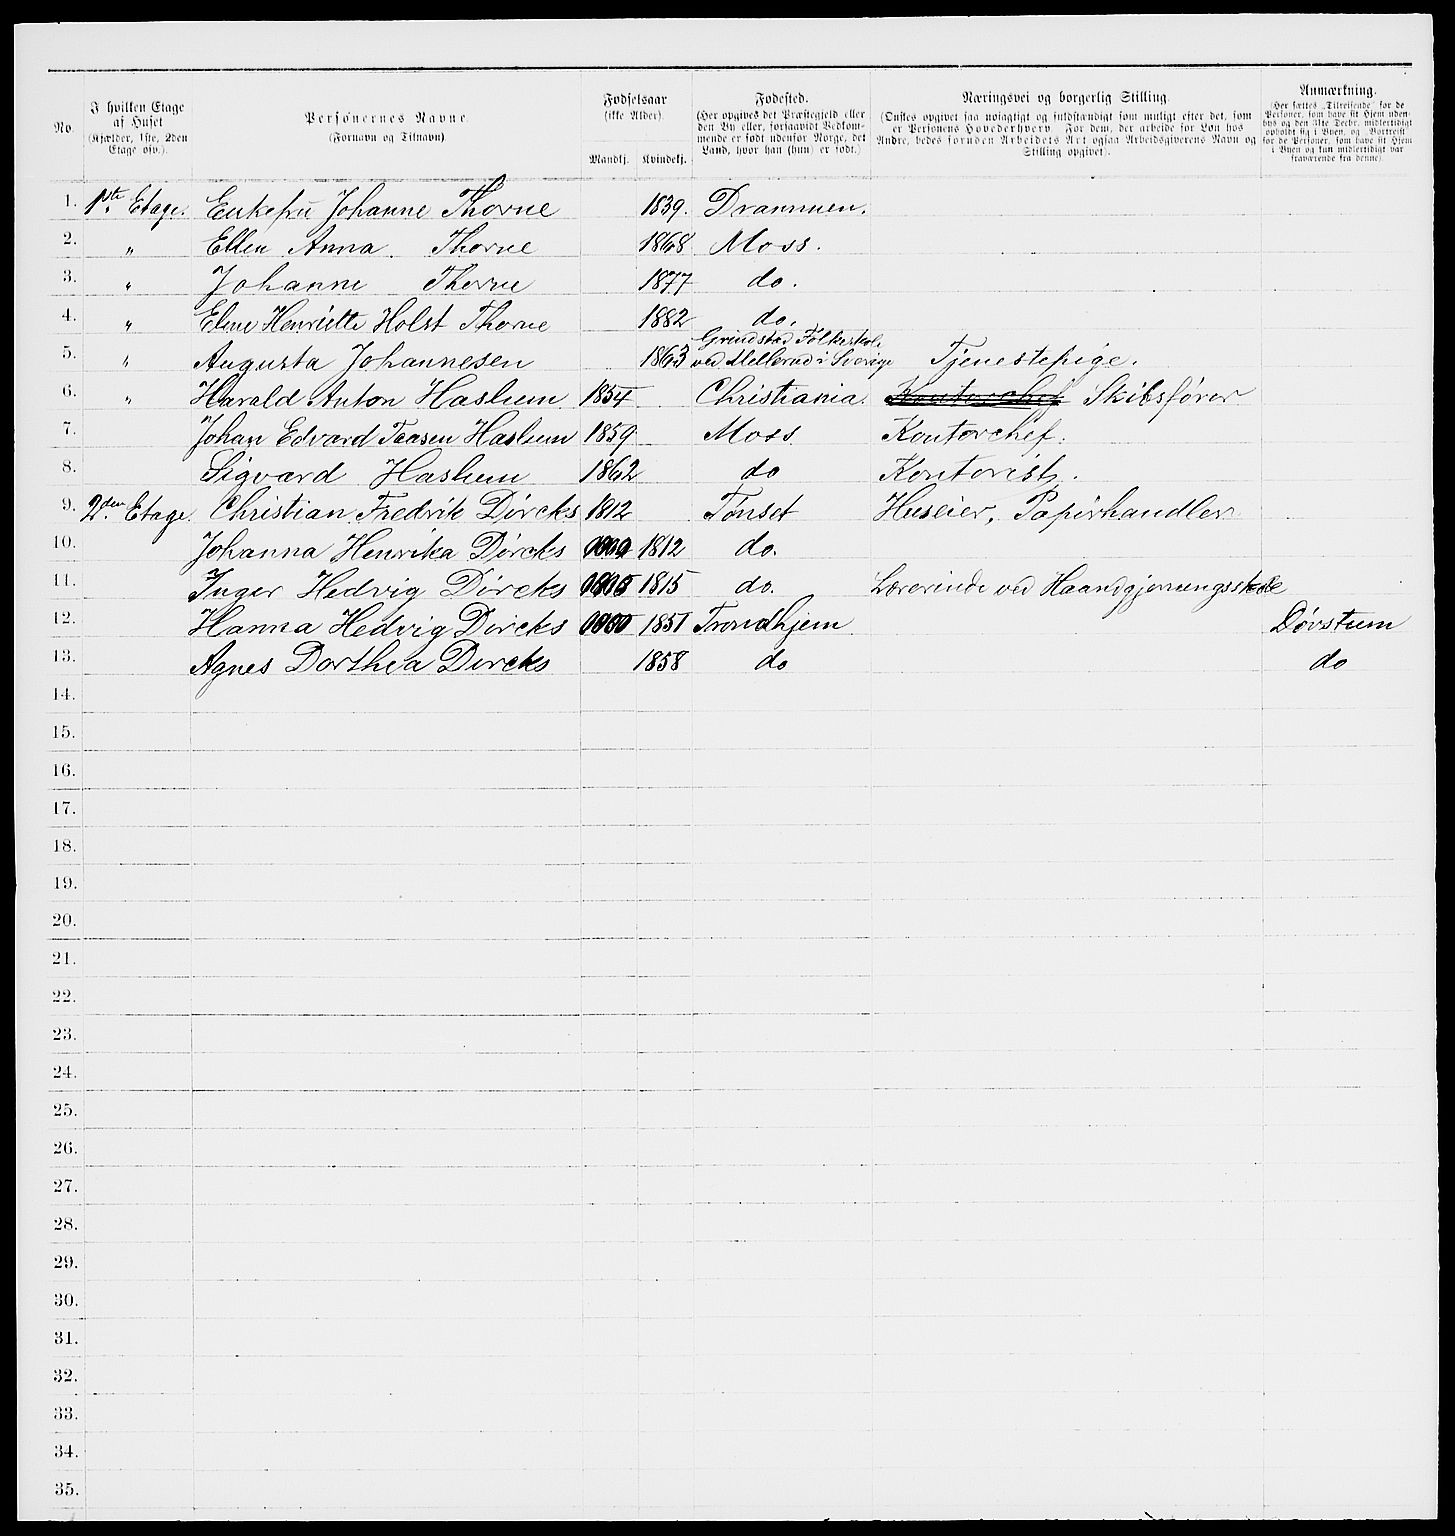 No.
I hvilken Etage
af Huset
(Kjælder, 1ste, 2den
Etage osv.).
Personernes Navne.
(Fornavn og Tilnavn).
Fødselsaar
(ikke Alder).
Mandkj. Kvindekj.
Fødested.
(Her opgives det Præstegjeld eller
den By eller, forsaavidt Vedkom-
mende er født udenfor Norge, det
Land, hvor han (hun) er født.)
Næringsvei og borgerlig Stilling.
(Ønskes opgivet saa nøiagtigt og fuldstændigt som muligt efter det, som
er Personens Hovederhverv. For dem, der arbeide for Løn hos
Andre, bedes foruden Arbeidets Art ogsaa Arbeidsgiverens Navn og
Stilling opgivet).
Anmærkning.
(Her sættes „Tilreisende" for de
Personer, som have sit Hjem uden-
bys og den 31te Decbr. midlertidigt
opholdt sig i Byen, og „Bortreist"
for de Personer, som have sit Hjem
i Byen og kun midlertidigt var
fraværende fra denne).
1. 1ste Etage. Enkefru Johanne Thorne 1839. Drammen.
2. " Ellen Anna. Thorne 1868 Moss.
3. " Johanne Thorne 1877 do.
4. " Eline Henriette Holst Thorne 1882 do.
5. " Augusta Johannesen 1863 Grindstad Folkeskole
ved Mellerud i Sverige Tjenestepige.
6. " Harald Anton Haslum 1854 Christiania Kontorchef Skibsfører
7. Johan Edvard Taasen Haslum 1859 Moss Kontorchef.
8. Sigvard Haslum 1862 do Kontorist.
9. 2den Etage. Christian Fredrik Dircks 1812 Tønset Huseier, Papirhandler
10. Johanna Henrika Dircks 1812 do.
11. Inger Hedvig Dircks 1815 do. Lærerinde ved Haandgjerningsskole
12. Hanna Hedvig Dircks 1851 Trondhjem Døvstum
13. Agnes Dorthea Dircks 1858 do do
14.
15.
16.
17.
18.
19.
20.
21.
22.
23.
24.
25.
26.
27.
28.
29.
30.
31.
32.
33.
34.
35.